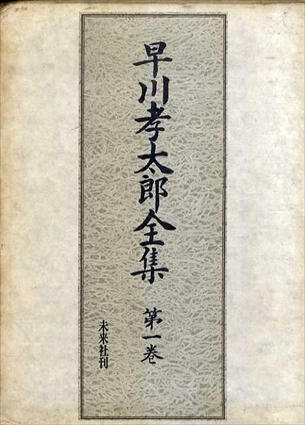 早川孝太郎全集
第一巻
未来社刊